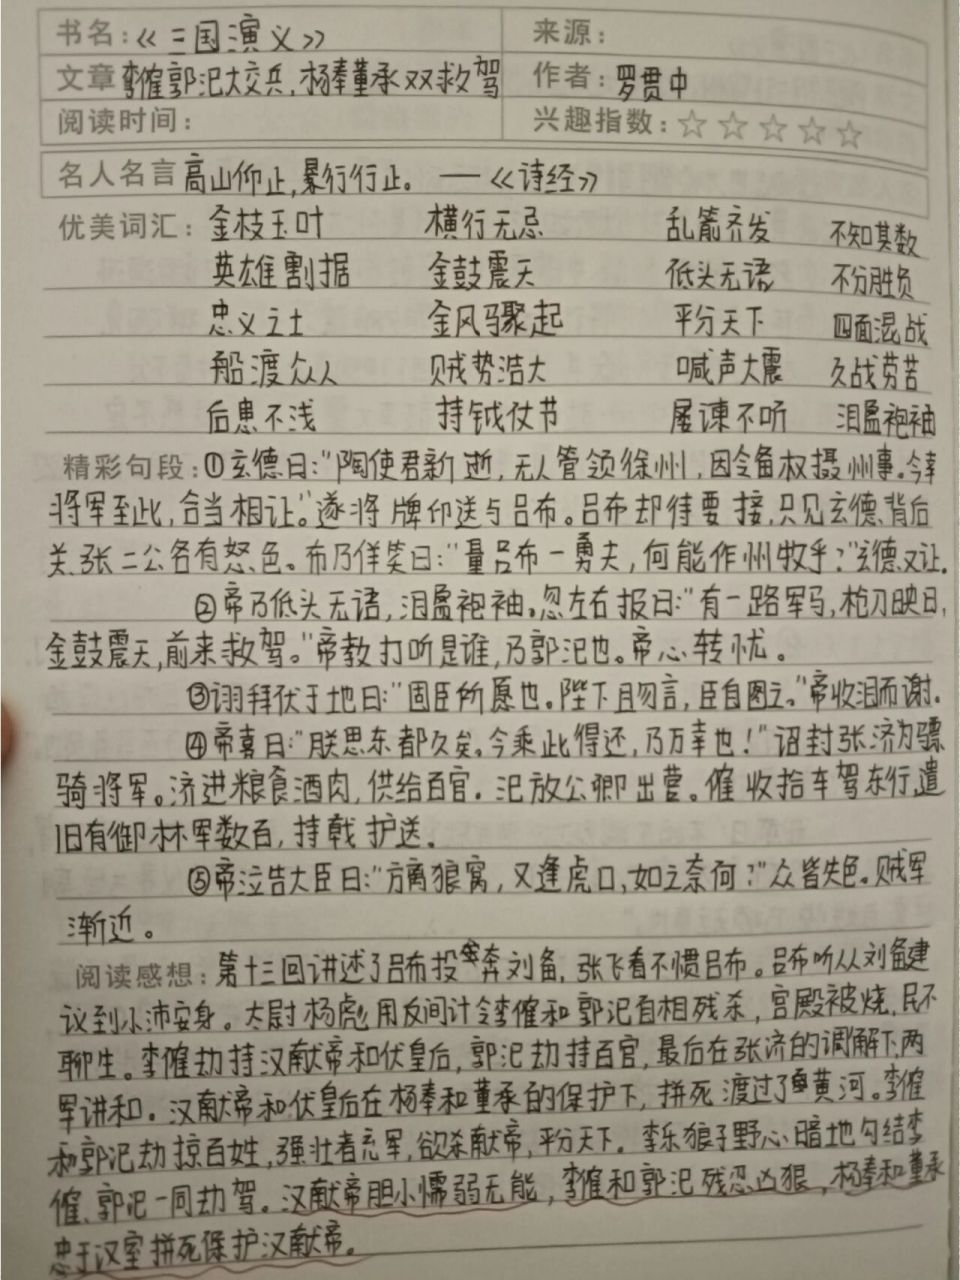 书名：《三国演义》 来源：
文章 李傕郭汜大交兵，杨奉董承双救驾 作者：罗贯中
阅读时间： 兴趣指数：☆☆☆☆☆
名人名言 高山仰止，景行行止。——《诗经》
优美词汇：金枝玉叶 横行无忌 乱箭齐发 不知其数
英雄割据 金鼓震天 低头无语 不分胜负
忠义之士 金风骤起 平分天下 四面混战
船渡众人 贼势浩大 喊声大震 久战劳苦
后患不浅 持钺仗节 屡谏不听 泪盈袍袖
精彩句段：①玄德曰：“陶使君新逝，无人管领徐州，因令备权摄州事。今幸
将军至此，合当相让。”遂将牌印送与吕布。吕布却待要接，只见玄德背后
关、张二公各有怒色。布乃佯笑曰：“量吕布一勇夫，何能作州牧乎？”玄德又让。
②帝乃低头无语，泪盈袍袖。忽左右报曰：“有一路军马，枪刀映日，
金鼓震天，前来救驾。”帝教打听是谁，乃郭汜也。帝心转忧。
③诩拜伏于地曰：“固臣所愿也。陛下且勿言，臣自图之。”帝收泪而谢。
④帝喜曰：“朕思东都久矣。今乘此得还，乃万幸也！”诏封张济为骠
骑将军。济进粮食酒肉，供给百官。汜放公卿出营。傕收拾车驾东行，遣
旧有御林军数百，持戟护送。
⑤帝泣告大臣曰：“方离狼窝，又逢虎口，如之奈何？”众皆失色。贼军
渐近。
阅读感想：第十三回讲述了吕布投奔刘备，张飞看不惯吕布。吕布听从刘备建
议到小沛安身。太尉杨彪用反间计令李傕和郭汜自相残杀，宫殿被烧，民不
聊生。李傕劫持汉献帝和伏皇后，郭汜劫持百官，最后在张济的调解下，两
军讲和。汉献帝和伏皇后在杨奉和董承的保护下，拼死渡过了黄河。李傕
和郭汜劫掠百姓，强壮者充军，欲杀献帝，平分天下。李乐狼子野心暗地勾结李
傕、郭汜一同劫驾。汉献帝胆小懦弱无能，李傕和郭汜残忍凶狠，杨奉和董承
忠于汉室拼死保护汉献帝。